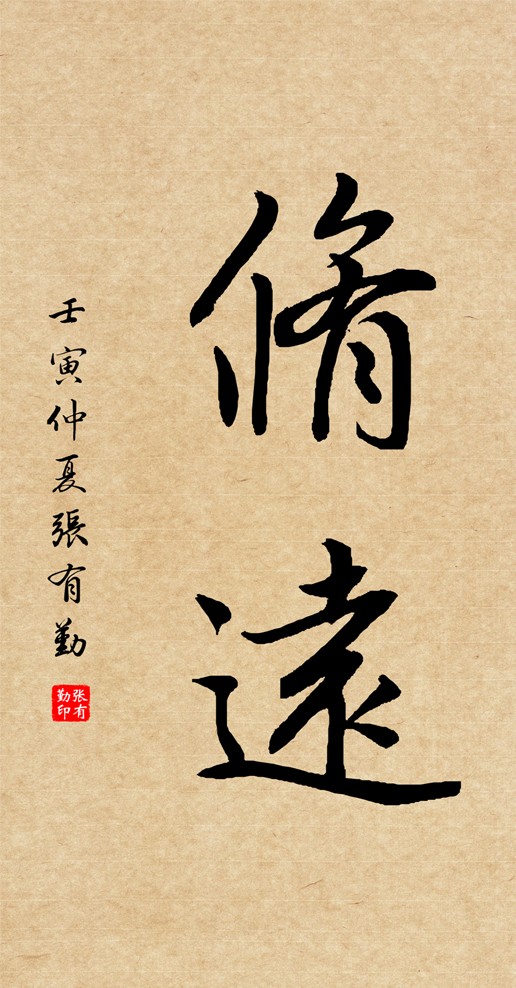 脩遠
壬寅仲夏張有勤
张有
勤印